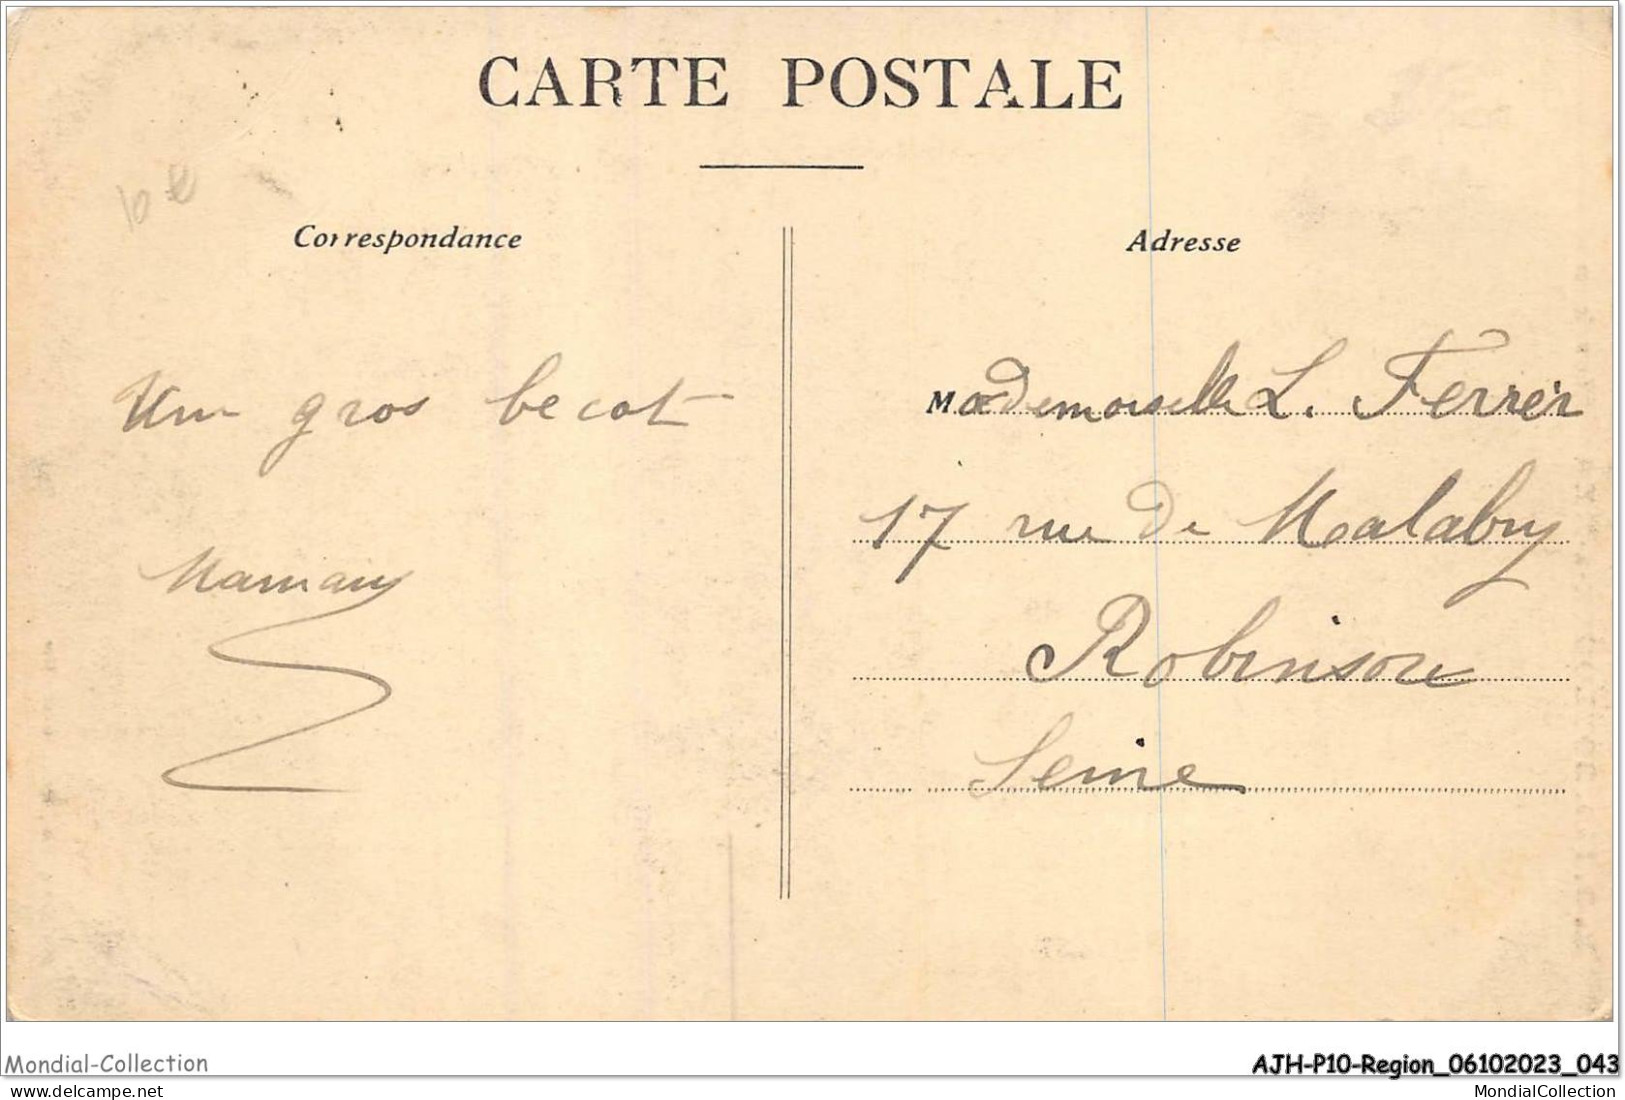 CARTE POSTALE
Correspondance
Un gros becot
Maman
Adresse
Mademoiselle L. Ferrer
17 rue de Malabry
Robinson
Seine
Mondial-Collection
AJH-P10-Region_06102023_043
MondialCollection